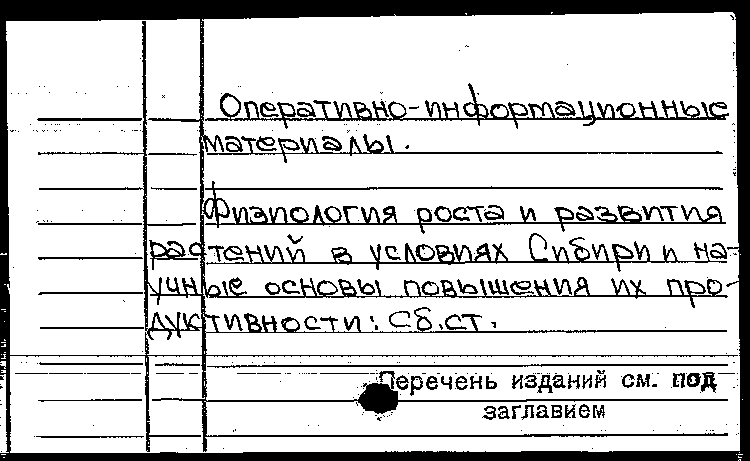 Оперативно-информационные
материалы.
Физиология роста и развития
растений в условиях Сибири и на-
учные основы повышения их про-
дуктивности: Сб.ст.
Перечень изданий см. под
заглавием